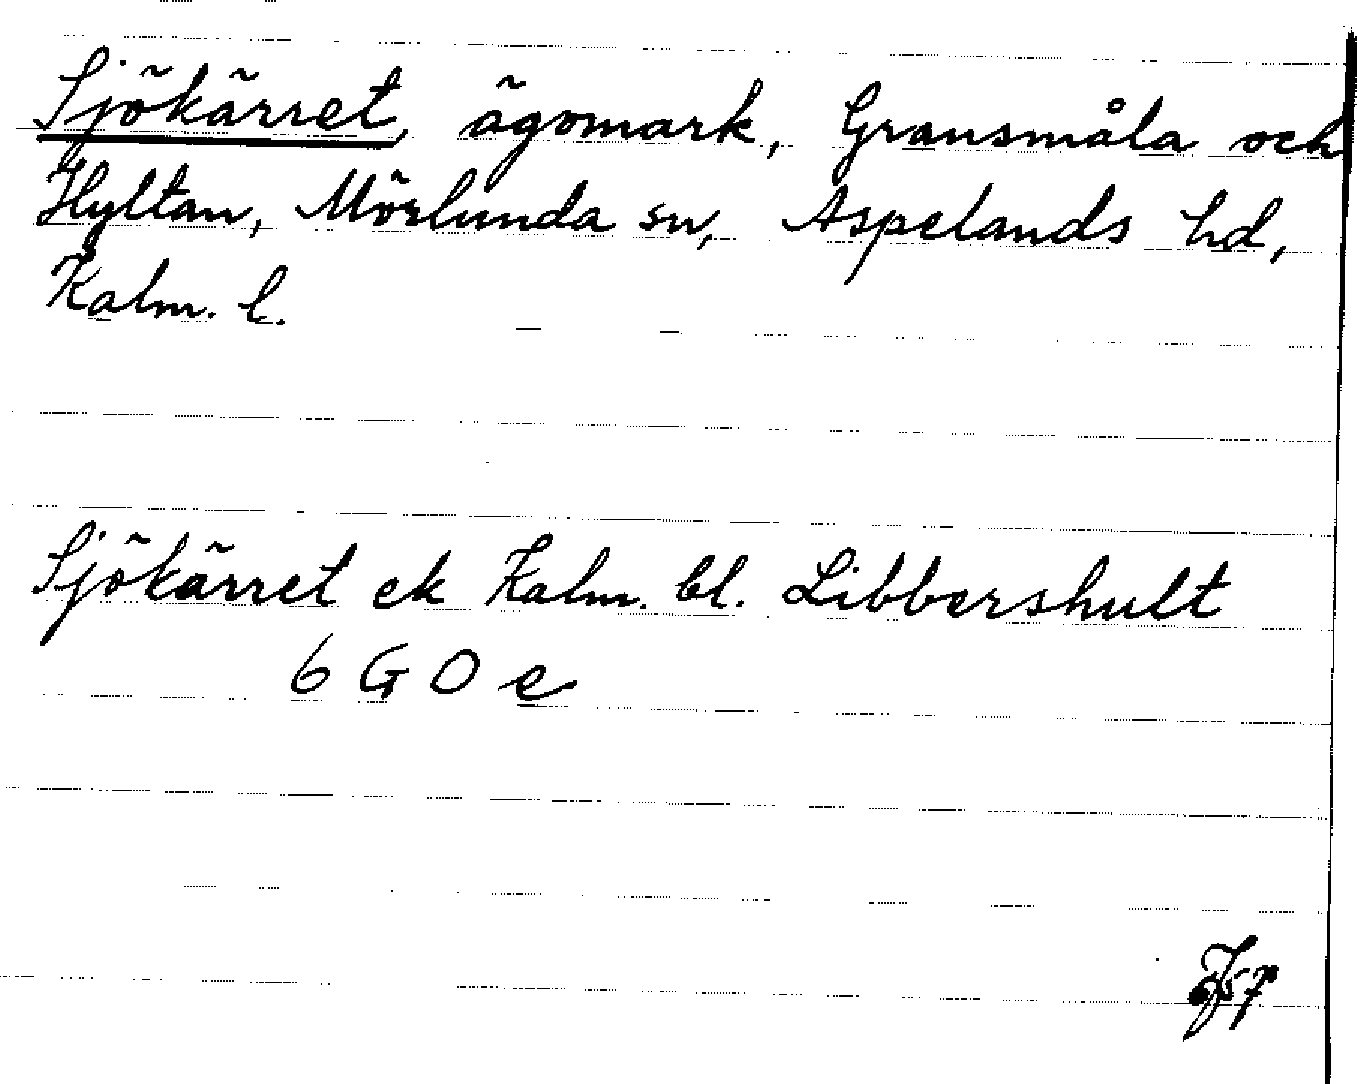 Sjökärret, ägomark, Gransmåla och
Hyltan, Mörlunda sn, Aspelands hd,
Kalm. l.
Sjökärret ek Kalm. bl. Libbershult
6 G O e